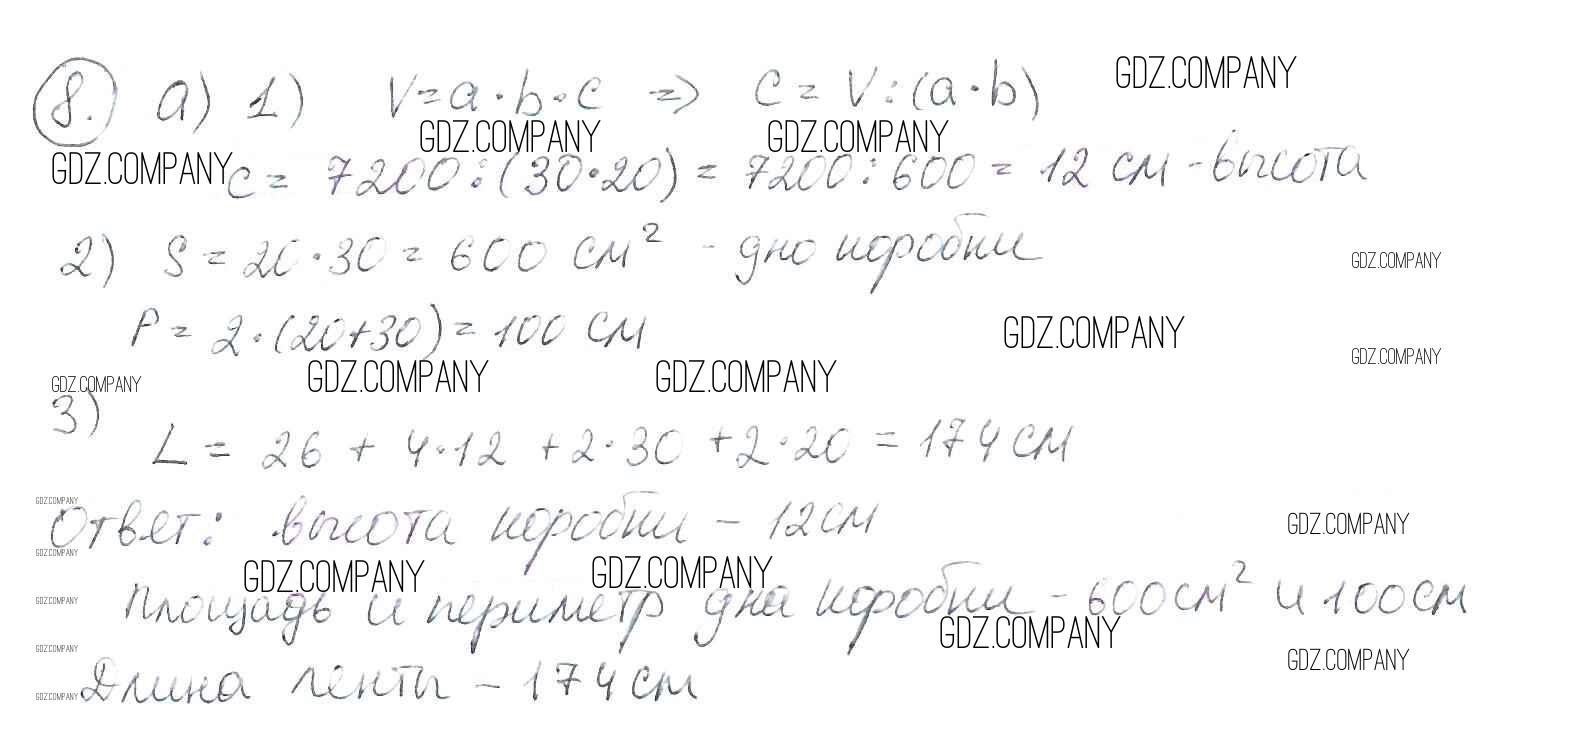 8. а) 1) V = a · b · c => c = V : (a · b)
GDZ.COMPANY
GDZ.COMPANY GDZ.COMPANY
GDZ.COMPANY
c = 7200 : (30 · 20) = 7200 : 600 = 12 см - высота
2) S = 20 · 30 = 600 см² - дно коробки
GDZ.COMPANY
P = 2 · (20 + 30) = 100 см
GDZ.COMPANY
GDZ.COMPANY
GDZ.COMPANY GDZ.COMPANY GDZ.COMPANY
3)
L = 26 + 4 · 12 + 2 · 30 + 2 · 20 = 174 см
GDZ.COMPANY
Ответ: высота коробки – 12 см
GDZ.COMPANY
GDZ.COMPANY
GDZ.COMPANY GDZ.COMPANY
GDZ.COMPANY
Площадь и периметр дна коробки – 600 см² и 100 см
GDZ.COMPANY
GDZ.COMPANY
GDZ.COMPANY
GDZ.COMPANY
Длина ленты – 174 см